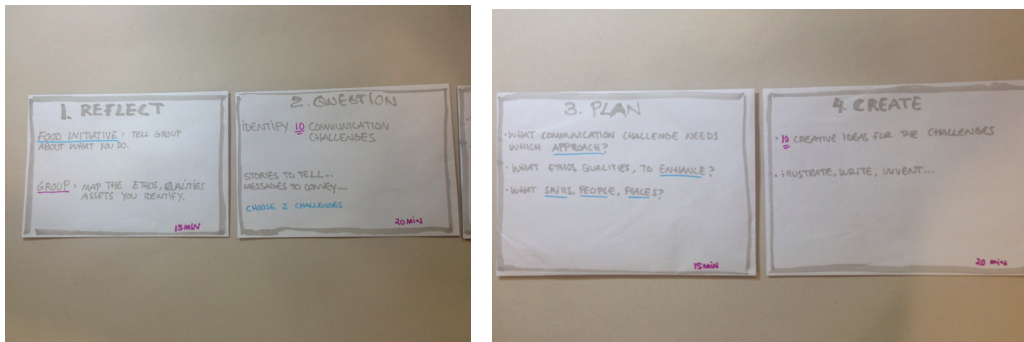 1. REFLECT
FOOD INITIATIVE: TELL GROUP
ABOUT WHAT YOU DO.
GROUP: MAP THE ETHOS, QUALITIES
ASSETS YOU IDENTIFY.
15MIN
2. QUESTION
IDENTIFY 10 COMMUNICATION
CHALLENGES
STORIES TO TELL...
MESSAGES TO CONVEY...
CHOOSE 2 CHALLENGES
20MIN
3. PLAN
• WHAT COMMUNICATION CHALLENGE NEEDS
WHICH APPROACH?
• WHAT ETHOS QUALITIES, TO ENHANCE?
• WHAT SKILLS, PEOPLE, PLACES?
15MIN
4. CREATE
• 10 CREATIVE IDEAS FOR THE CHALLENGES
• ILLUSTRATE, WRITE, INVENT...
20 MIN